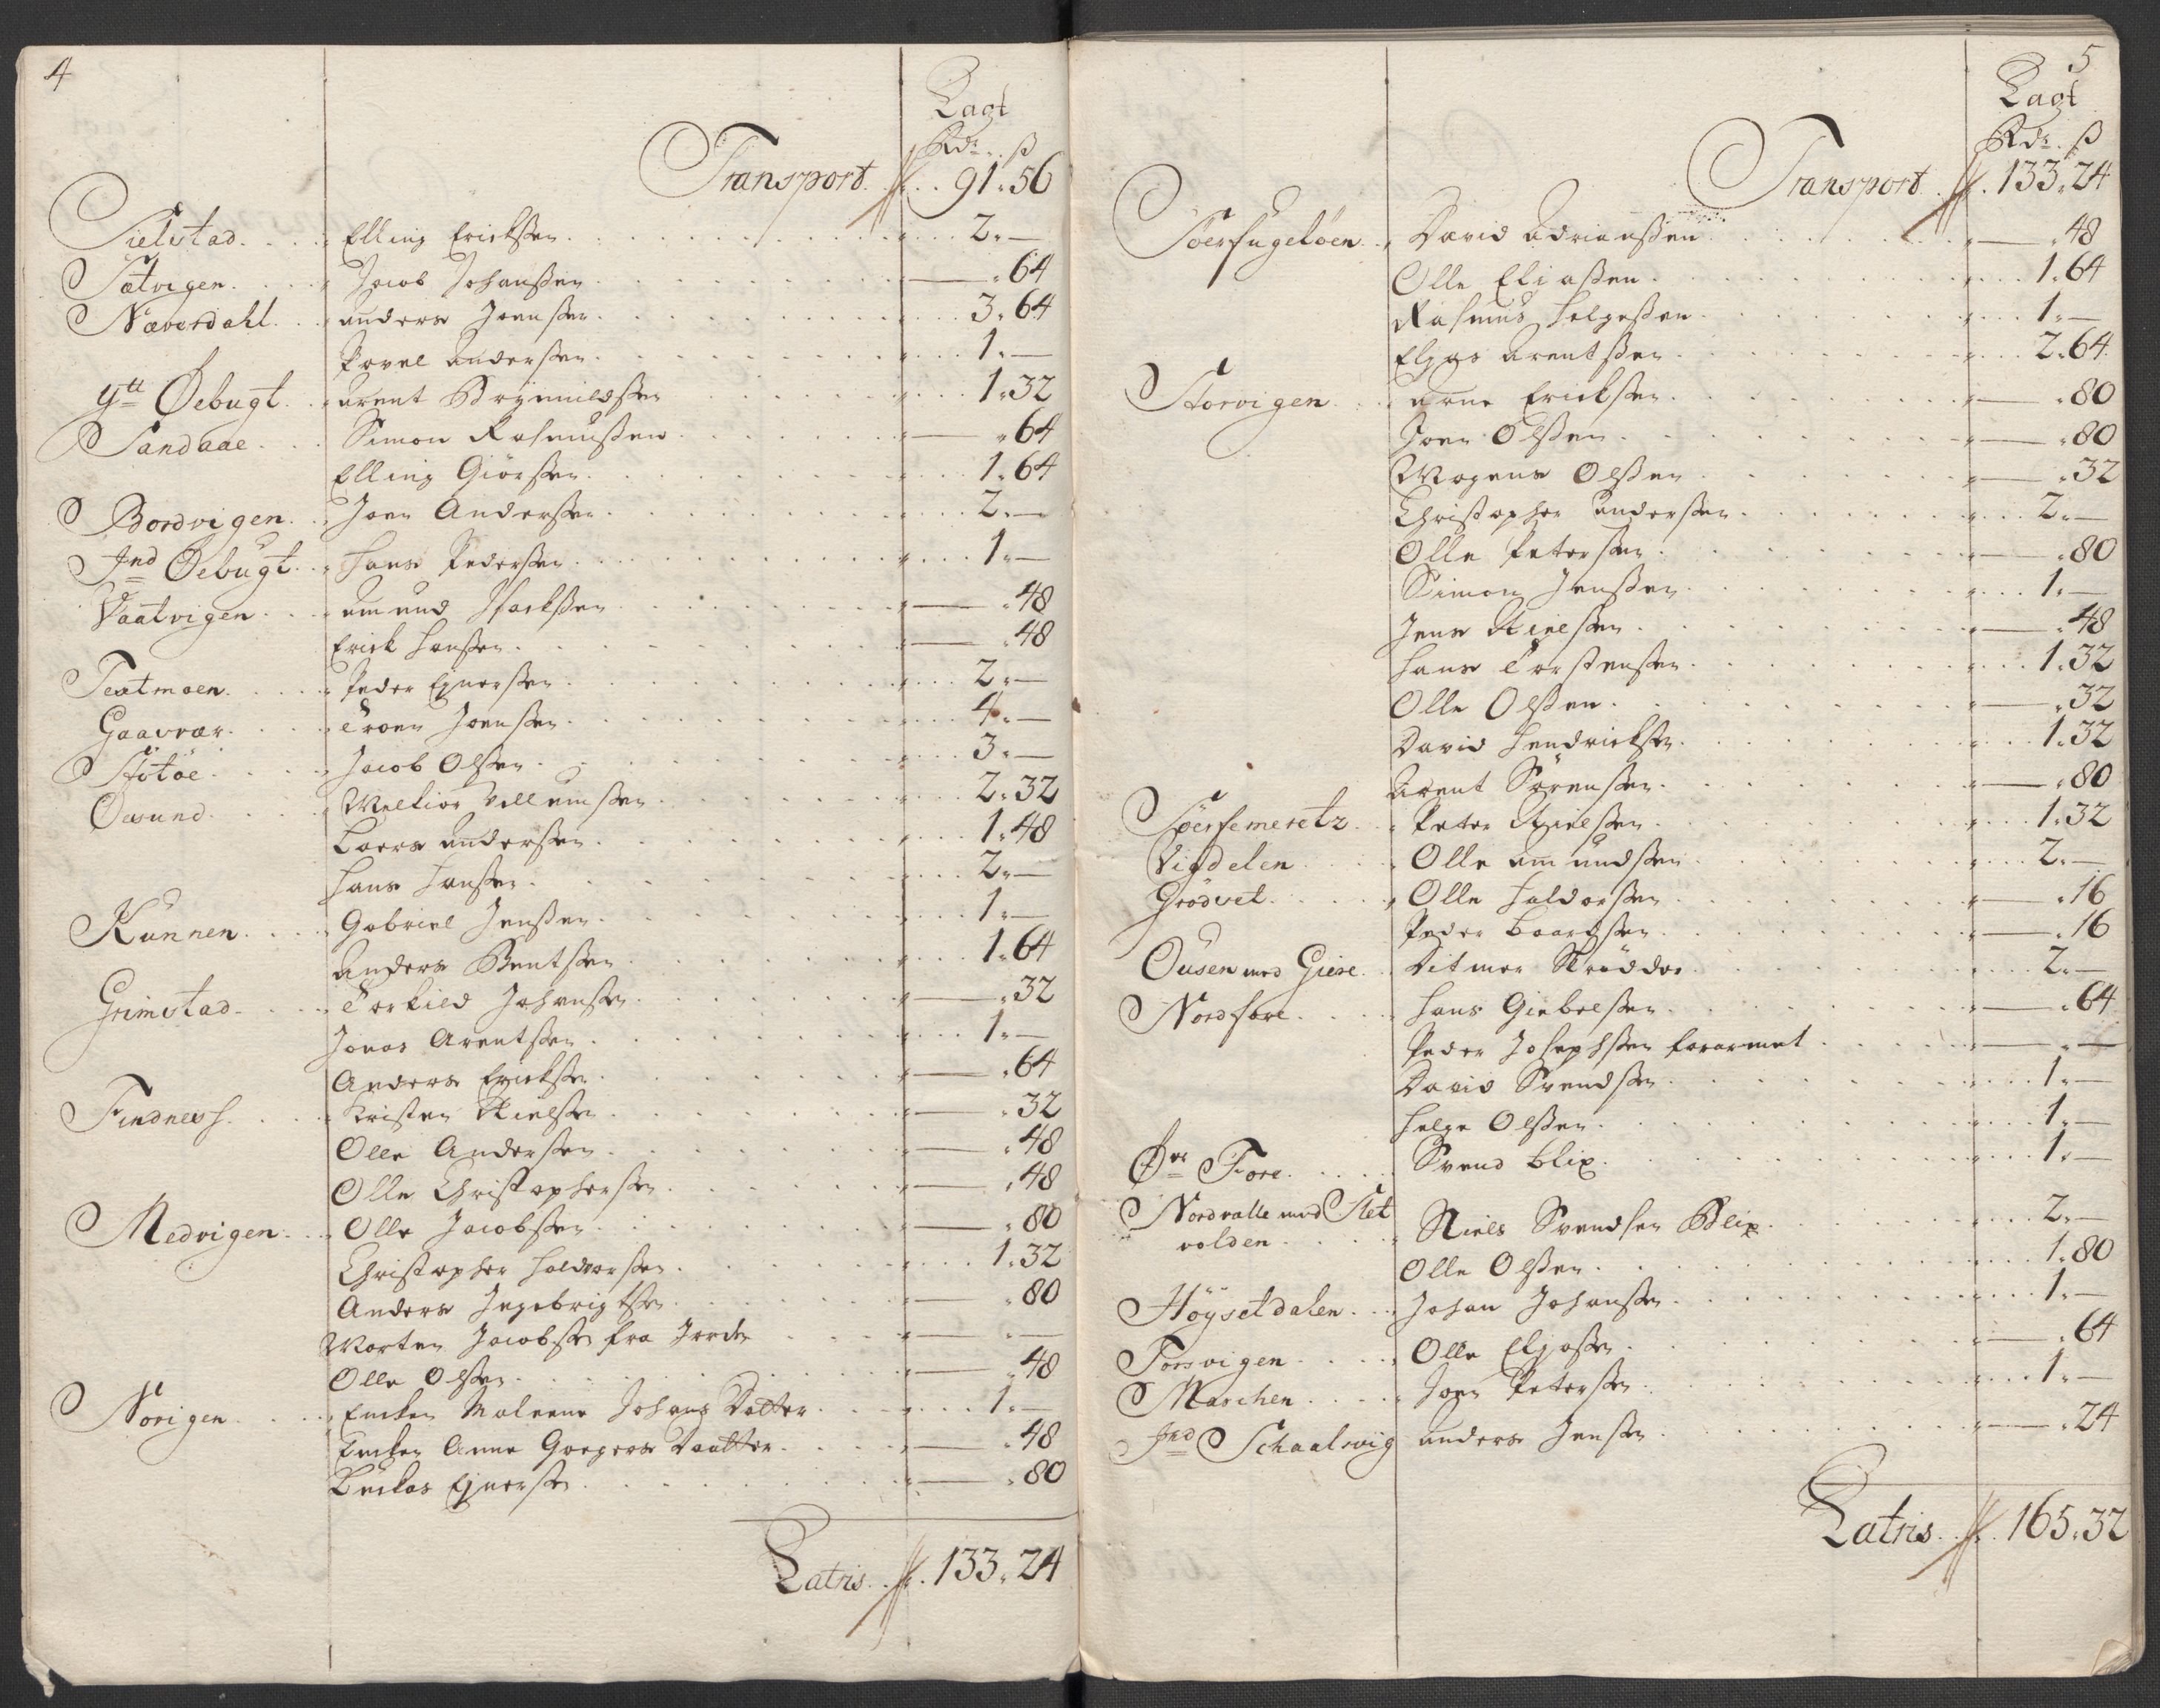 4
Lagt
Rdr. ß
Transport 91. 56
Sielstad. Elling Erichßen. 2. —
Sætvigen. Jacob Johanßen. — . 64
Næverdahl. anders Joenßen. 3. 64
Povel anderßen. 1. —
ytt Øebugt. arent Brÿnnildßen 1. 32
Sandaae. Simon Rasmußen. — . 64
Elling Giørßen. 1. 64
Bordvigen. Joen Anderßen. 2. —
Ind Øebugt. Hans Pederßen. 1. —
Vaatvigen. amund Isackßen. — . 48
Erick Hanßen. — . 48
Textmoen. Peder Ejnerßen. 2. —
Gaavvær. Troen Joenßen. 4. —
Støtøe. Jacob Olßen. 3. —
Øesund. Melkior Villumßen. 2. 32
Laers anderßen. 1. 48
Hans Hanßen. 2. —
Kunnen. Gabriel Jenßen. 1. —
anders Bentßen. 1. 64
Grimstad. Torkild Johanßen. — . 32
Jonas Arentßen. 1. —
Anders Erickßen. — . 64
Findnesh. Kristen Nielßen. — . 32
Olle Anderßen. — . 48
Olle Christopherßen. — . 48
Medvigen. Olle Jacobßen. — . 80
Christopher Haldorßen. 1. 32
Anders Ingebrigtßen. — . 80
Morten Jacobßen fra Jorden — . —
Olle Olßen. — . 48
Norigen. Encken Maleene Johans Datter. 1. —
Encken Anne Gregers Daatter. — . 48
Luckas Ejnerßen. — . 80
Latris. 133. 24
5
Lagt
Rdr. ß
Transport. 133. 24
Søerfugeløen. David Adrianßen. — . 48
Olle Eliaßen. 1. 64
Rasmus Helgeßen. 1. —
Elias arentßen. 2. 64
Storvigen. arne Erickßen. — . 80
Joen Olßen. — . 80
Mogens Olßen. — . 32
Christopher anderßen. 2. —
Olle Peterßen. — . 80
Simon Jenßen. 1. —
Jens Nielßen. — . 48
Hans Torstenßen. 1. 32
Olle Olßen. — . 32
David Hendrickßen. 1. 32
Arent Sørenßen. — . 80
Søerfemeretz. Peter Nielßen. 1. 32
Vigdelen. Olle amundßen 2. —
Grødvet. Olle Haldorßen. — . 16
Peder Baardßen. — . 16
Ousen med Giere. Ditmer Skrødder. 2. —
Nordfore. Hans Giebelßen. — . 64
Peder Josephßen forarmet. — . —
David Svendßen. 1. —
Helge Olßen. 1. —
Øer Fore. Svend Blix. 1. —
Nordvalle med Slet
volden. Niels Svendsen Blix. 2. —
Olle Olßen. 1. 80
Høÿsetdalen. Johan Johanßen. 1. —
Forsvigen. Olle Eljaßen. — . 64
Marchen. Joen Peterßen. 1. —
Ind Schaalsvig anders Jenßen. — . 24
Latris. 165. 32